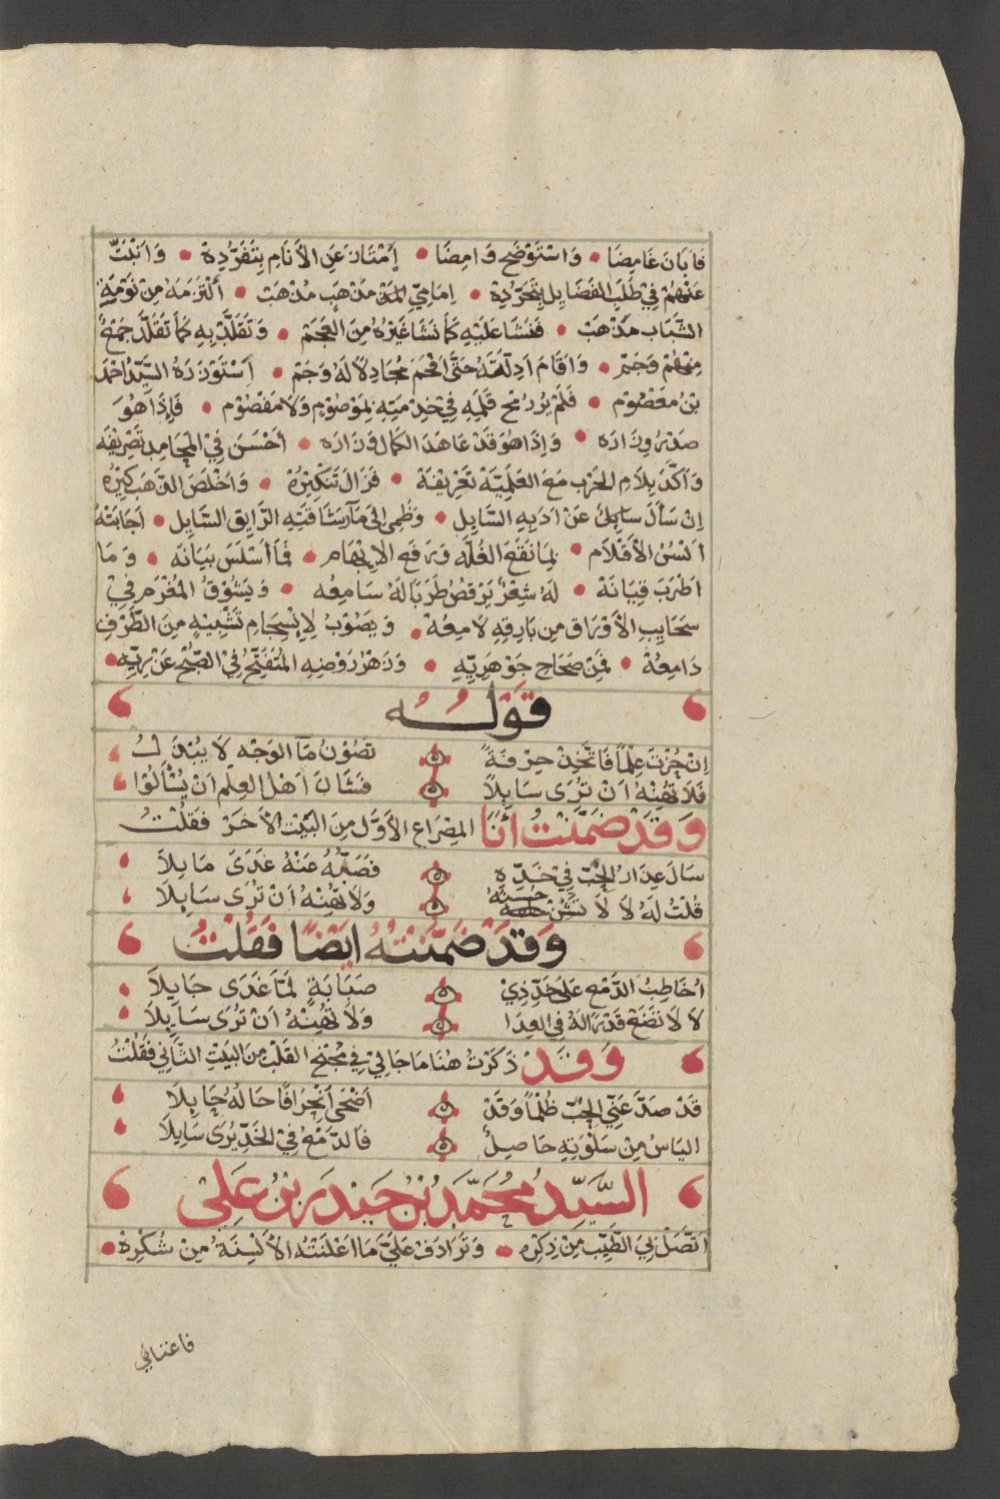 فابان غامضا • واستوضح وامضا • امتاز عن الأنام بتفرده • وانبتّ
عنهم في طلب الفضايل بتجرده • امامي المذهب مذهب • ألتزمه من نومة
الشباب مذهب • فنشا عليه كما نشا غيره من العجم • وتقلد به كما تقلد جمع
منهم وجم • واقام ادلته حتى افحم مجادلا له وجم • استوزره السيد احمد
بن معصوم • فلم يزد مح قلمه في خدمته بموصوم ولا مفصوم • فإذا هو
صدر وزاره • وإذا هو قد عاهد الكمال وزاره • أحسن في المحامد تصريفه
وأكد بلام الحزب مع العلمية تعريفه • فزال تنكيره • واخلص الذهب كيره
إن سأل سايل عن ادبه السايل • وظمى الى ما رشافته الرايق السايل • اجابته
السن الأقلام • بما نقع الغله ورفع الابهام • فما أسلس بيانه • وما
اطرب قيانه • له شعر يرقص طربا له سامعه • ويشوق المغرم في
سحايب الأوراق من بارقه لامعه • ويصوب لانسجام تشبيبه من الطرف
دامعه • فمن صحاح جوهريه • وزهر روضه المتفتح في الصبح عن
قوله
إن حزت علما فاتخذ حرفة تصون ماء الوجه لا يبذل
فلا تهنه ان ترى سايلا فشان اهل العلم ان يسألوا
وقد ضمنت أنا المصراع الأول من البيت الأخر فقلت
سال عذار الحب في خده فصده عنه غدى مايلا
قلت له لا لا تشن حسنه ولا تهنه ان ترى سايلا
وقد ضمنته ايضا فقلت
اخاطب الدمع على خد ذي صبابة لما غدى جايلا
لا لا تضع قدرا له في العدا ولا تهنه ان ترى سايلا
وقد ذكرت هنا ما جا لي في مجنح القلب من البيت الثاني فقلت
قد صد عني الحب ظلما وقد أضحى انحرافا حاله حايلا
الياس من سلوته حاصل فالدمع في الخد يرى سايلا
السيد محمد بن حيدر بن علي
اتصل بي الطيب من ذكره • وترادف علي ما اعلنته الألسنة من شكره •
فاغتنا بي